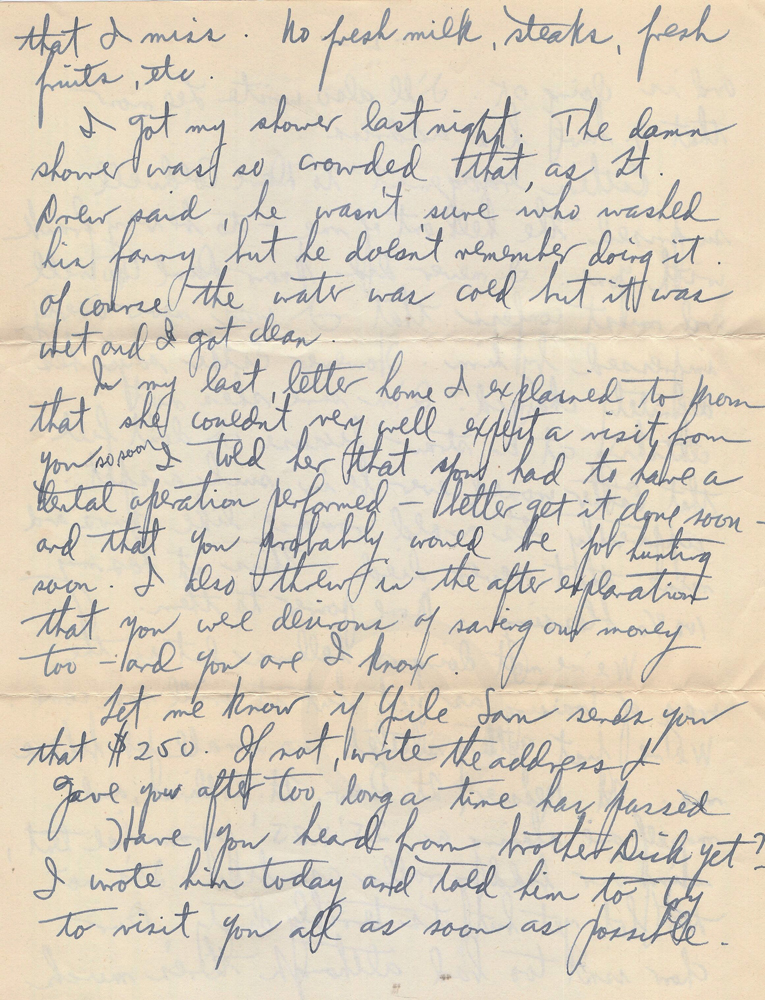 that I miss. No fresh milk, steaks, fresh
fruits, etc.
I got my shower last night. The damn
shower was so crowded that, as Lt.
Drew said, he wasn't sure who washed
his fanny but he doesn't remember doing it.
Of course the water was cold but it was
wet and I got clean.
In my last letter home I explained to Mom
that she couldn't very well expect a visit from
you so soon I told her that you had to have a
dental operation performed — better get it done soon -
and that you probably would be job hunting
soon. I also threw in the after explanation
that you were desirous of saving our money
too — and you are I know.
Let me know if Uncle Sam sends you
that $250. If not, write the address I
gave you after too long a time has passed
Have you heard from brother Dick yet?
I wrote him today and told him to try
to visit you all as soon as possible.